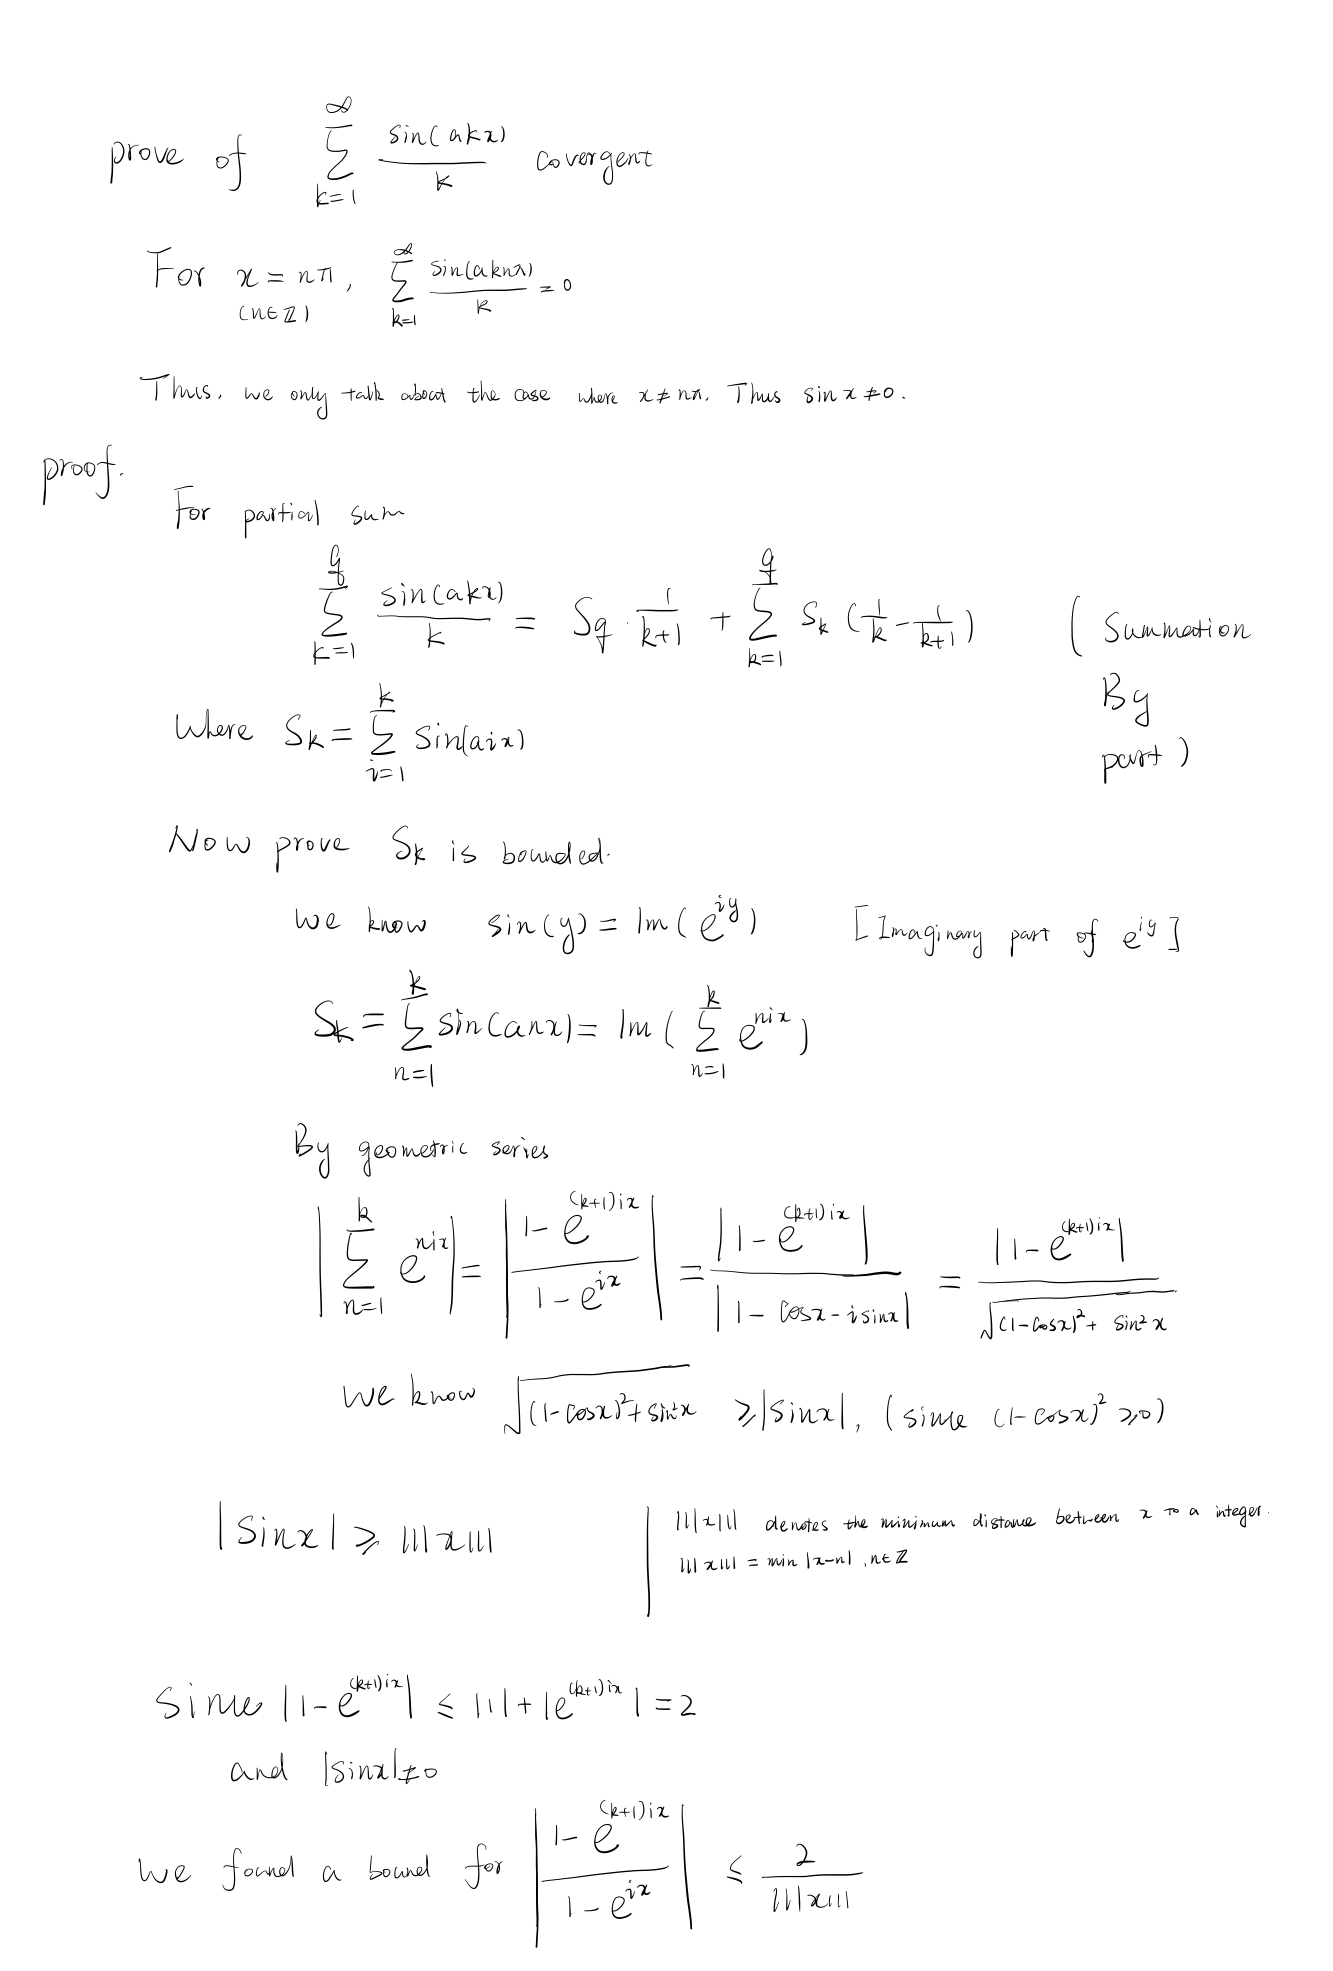 prove of \sum_{k=1}^{\infty} \frac{sin(akx)}{k} covergent
For x = nπ, \sum_{k=1}^{\infty} \frac{sin(aknπ)}{k} = 0
(n∈ℤ)
Thus, we only talk about the case where x≠nπ. Thus sin x ≠0.
proof.
For partial sum
\sum_{k=1}^{q} \frac{sin(akx)}{k} = S_q · \frac{1}{k+1} + \sum_{k=1}^{q} S_k (\frac{1}{k} - \frac{1}{k+1}) (Summation By part)
Where S_k = \sum_{i=1}^{k} Sin(aix)
Now prove S_k is bounded.
we know sin(y) = Im(e^{iy}) [Imaginary part of e^{iy}]
S_k = \sum_{n=1}^{k} sin(anx) = Im(\sum_{n=1}^{k} e^{nix})
By geometric series
|\sum_{n=1}^{k} e^{nix}| = |\frac{1-e^{(k+1)ix}}{1-e^{ix}}| = \frac{|1-e^{(k+1)ix}|}{|1-cosx-isinx|} = \frac{|1-e^{(k+1)ix}|}{\sqrt{(1-cosx)^2+sin^2x}}
we know \sqrt{(1-cosx)^2+sin^2x} ≥|sinx|, (since (1-cosx)^2 ≥0)
|sinx| ≥ |||x|||
|||x||| denotes the minimum distance between x to a integer.
|||x||| = min |x-n|, n∈ℤ
Since |1-e^{(k+1)ix}| ≤ |1|+|e^{(k+1)ix}| = 2
and |sinx|≠0
we found a bound for |\frac{1-e^{(k+1)ix}}{1-e^{ix}}| ≤ \frac{2}{|||x|||}